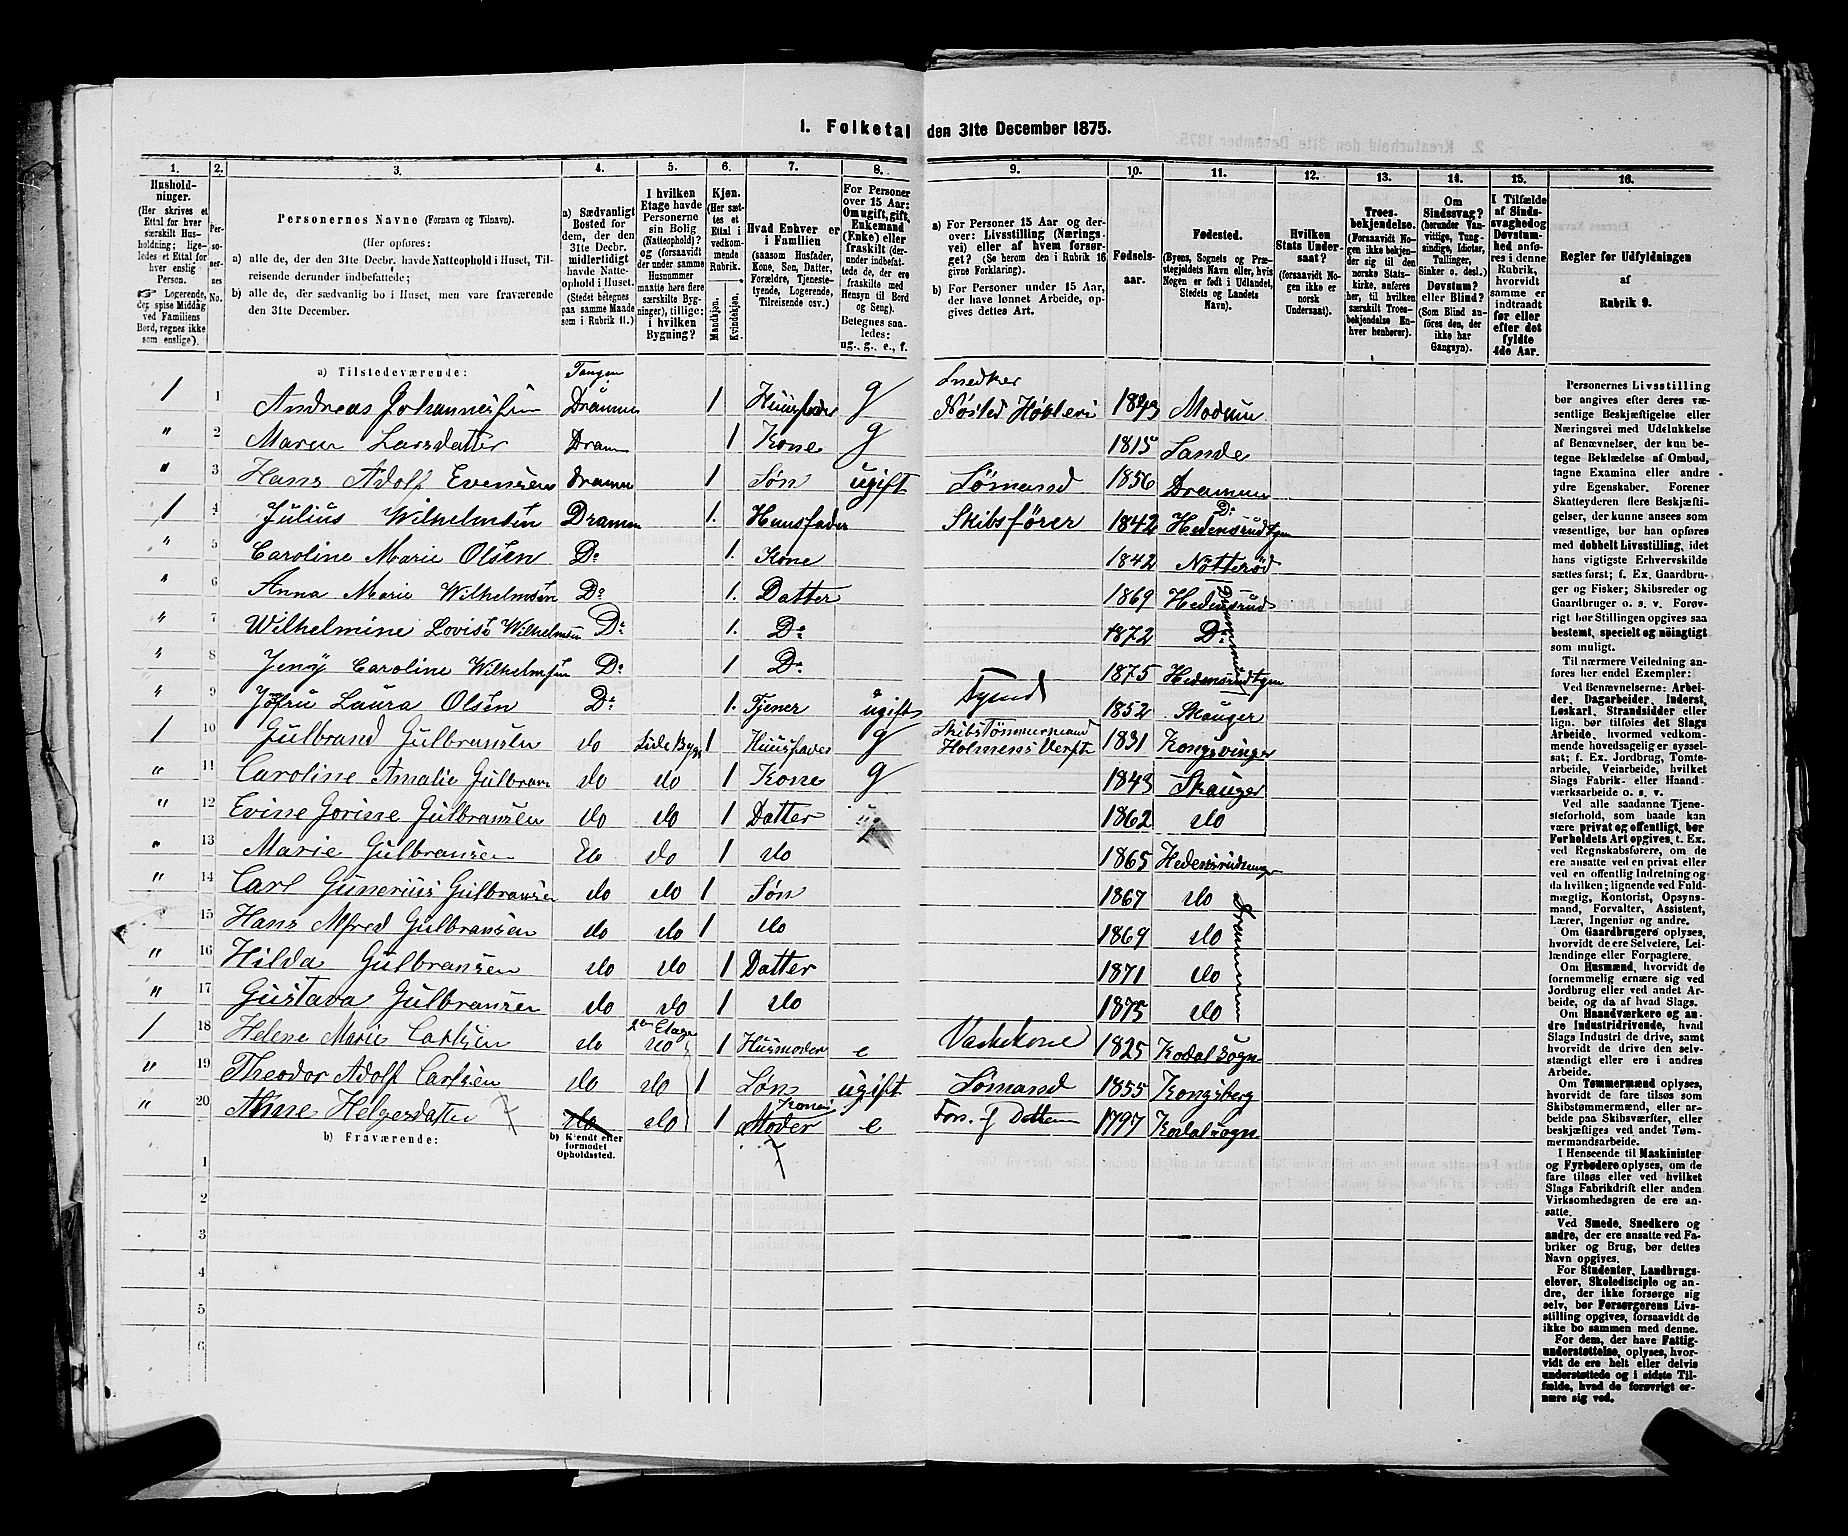 1. Folketal den 31te December 1875.
1. 2. 3. 4. 5. 6. 7. 8. 9. 10. 11. 12. 13. 14. 15. 16.
Hushold-
ninger.
(Her skrives et
Ettal for hver
særskilt Hus-
holdning; lige-
ledes et Ettal for
hver enslig
Person.
☞ Logerende,
der spise Middag
ved Familiens
Bord, regnes ikke
som enslige).
Per-
so-
ner-
nes
No.
Personernes Navne (Fornavn og Tilnavn).
(Her opføres:
a) alle de, der den 31te Decbr. havde Natteophold i Huset, Til-
reisende derunder indbefattede;
b) alle de, der sædvanlig bo i Huset, men vare fraværende
den 31te December.
a) Sædvanligt
Bosted for
dem, der den
31te Decbr.
midlertidigt
havde Natte-
ophold i Huset.
(Stedet betegnes
paa samme Maade
som i Rubrik 11.)
I hvilken
Etage havde
Personerne
sin Bolig
(Natteophold)?
og (forsaavidt
der under samme
Husnummer
maatte høre flere
særskilte Byg-
ninger), tillige:
i hvilken
Bygning?
Kjøn.
(Her sæt-
tes et
Ettal i
vedkom-
mende
Rubrik.
Mandkjøn.
Kvindekjøn.
Hvad Enhver er
i Familien
(saasom Husfader,
Kone, Søn, Datter,
Forældre, Tjeneste-
tyende, Logerende,
Tilreisende osv.)
For Personer
over 15 Aar:
Om ugift, gift,
Enkemand
(Enke) eller
fraskilt (der-
under indbefat-
tede de, der ere
fraskilte med
Hensyn til Bord
og Seng).
Betegnes saa-
ledes:
ug., g., e., f.
a) For Personer 15 Aar og der-
over: Livsstilling (Nærings-
vei) eller af hvem forsør-
get? (Se herom den i Rubrik 16
givne Forklaring).
b) For Personer under 15 Aar,
der have lønnet Arbeide, op-
gives dettes Art.
Fødsels-
aar.
Fødested.
(Byens, Sognets og Præ-
stegjeldets Navn eller, hvis
Nogen er født i Udlandet,
Stedets og Landets
Navn).
Hvilken
Stats Under-
saat?
(forsaavidt No-
gen ikke er
norsk
Undersaat).
Troes-
bekjendelse.
(Forsaavidt No-
gen ikke bekjen-
der sig til den
norske Stats-
kirke, anføres
her, til hvilken
særskilt Troes-
bekjendelse En-
hver henhører).
Om
Sindssvag?
(herunder Van-
vittige, Tung-
sindige, Idioter,
Tullinger,
Sinker o. desl.)
Døvstum?
eller Blind?
(Som Blind an-
føres den, der
ikke har
Gangsyn).
I Tilfælde
af Sinds-
svaghed og
Døvstum-
hed anfø-
res i denne
Rubrik,
hvorvidt
samme er
indtraadt
før eller
efter det
fyldte
4de Aar.
Regler for Udfyldningen
af
Rubrik 9.
a) Tilstedeværende:
Tangen Snedker
1 1 Andreas Johannessen Drammen 1 Huusfader g Nøsted 1823 Modum
" 2 Maren Larsdatter Dram 1 Kone g 1815 Sande
" 3 Hans Adolf Evensen Drammen 1 Søn ugift Sømand 1856 Drammen
1 4 Julius Wilhelmsen Drammen 1. Huusfader Skibsfører 1842 Hedensrudtgen
" 5 Caroline Marie Olsen Do 1. Kone 1842 Nøtterød
" 6 Anna Marie Wilhelmsen Do 1. Datter 1869 Hedensrud
" 7 Wilhelmine Lovise Wilhelmsen Do 1. Do 1872 Do
" 8 Jeny Caroline Wilhelmsen Do 1 Do 1875 Hedensrudtgen
" 9 Jofru Laura Olsen Do 1. Tjener ugift Tyend 1852 Skauger
1 10 Gulbrand Gulbransen do Side Bygn 1 Huusfader g Skibstømmermand
Holmens Verft 1831 Kongsvinger
" 11 Caroline Amalie Gulbrans do do 1 Kone g 1843 Skauger
" 12 Evine Jorine Gulbransen do do 1 Datter 1862 do
" 13 Marie Gulbransen do do 1 do 1865 Hedensrudtangen
" 14 Carl Gunerius Gulbransen do do 1 Søn 1867 do
" 15 Hans Alfred Gulbransen do do 1 do 1869 do
" 16 Hilda Gulbransen do do 1 Datter 1871 do
" 17 Gustava Gulbransen do do 1 do 1875 do
Drammen
1 18 Helene Marie Carlsen do Etage do 1 Husmoder e Vaskekone 1825 Kodal Sogn
" 19 Theodor Adolf Carlsen do do 1 Søn ugift Sømand 1855 Kongsberg
" 20 Anne Helgesdatter do do 1 Konens Moder e Fors. af Datteren 1797 Kodal sogn
b) Fraværende:
b) Kjendt eller
formodet
Opholdssted.
1
2
3
4
5
6
Personernes Livsstilling
bør angives efter deres væ-
sentlige Beskjæftigelse eller
Næringsvei med Udelukkelse
af Benævnelser, der kun be-
tegne Beklædelse af Ombud,
tagne Examina eller andre
ydre Egenskaber. Forener
Skatteyderen flere Beskjæfti-
gelser, der kunne ansees som
væsentlige, bør han opføres
med dobbelt Livsstilling, idet
hans vigtigste Erhvervskilde
sættes først; f. Ex. Gaardbru-
ger og Fisker; Skibsreder og
Gaardbruger o. s. v. Forøv-
rigt bør Stillingen opgives saa
bestemt, specielt og nøiagtigt
som muligt.
Til nærmere Veiledning an-
føres her endel Exempler:
Ved Benævnelserne: Arbei-
der, Dagarbeider, Inderst,
Løskarl, Strandsidder eller
lign. bør tilføies det Slags
Arbeide, hvormed vedkom-
mende hovedsagelig er syssel-
sat; f. Ex. Jordbrug, Tomte-
arbeide, Veiarbeide, hvilket
Slags Fabrik- eller Haand-
værksarbeide o. s. v.
Ved alle saadanne Tjene-
steforhold, som baade kan
være privat og offentligt, bør
Forholdets Art opgives, t. Ex.
ved Regnskabsførere, om de
ere ansatte ved en privat eller
ved en offentlig Indretning og
da hvilken; lignende ved Fuld-
mægtig, Kontorist, Opsyns-
mand, Forvalter, Assistent,
Lærer, Ingeniør og andre.
Om Gaardbrugere oplyses,
hvorvidt de ere Selveiere, Lei-
lændinge eller Forpagtere.
Om Husmænd, hvorvidt de
fornemmelig ernære sig ved
Jordbrug eller ved andet Ar-
beide, og da af hvad Slags.
Om Haandværkere og an-
dre Industridrivende, hvad
Slags Industri de drive, samt
hvorvidt de drive den selv-
stændigt eller ere i andres
Arbeide.
Om Tømmermænd oplyses,
hvorvidt de fare tilsøs som
Skibstømmermænd, eller ar-
beide paa Skibsværfter, eller
beskjæftiges ved andet Tøm-
mermandsarbeide.
I Henseende til Maskinister
og Fyrbødere oplyses, om de
fare tilsøs eller ved hvilket
Slags Fabrikdrift eller anden
Virksomhedsgren de ere an-
satte.
Ved Smede, Snedkere og
andre, der ere ansatte ved Fa-
briker og Brug, bør dettes
Navn opgives.
For Studenter, Landbrugs-
elever, Skoledisciple og an-
dre, der ikke forsørge sig
selv, bør Forsørgerens Livs-
stilling opgives, forsaavidt de
ikke bo sammen med denne.
For dem, der have Fattig-
understøttelse, oplyses, hvor-
vidt de ere helt eller delvis
understøttede og i sidste Til-
fælde, hvad de forøvrigt er-
nære sig ved.